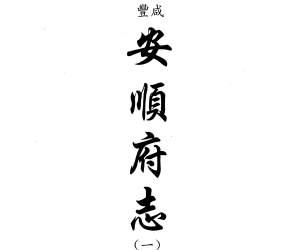 豐咸
安順府志
(一)